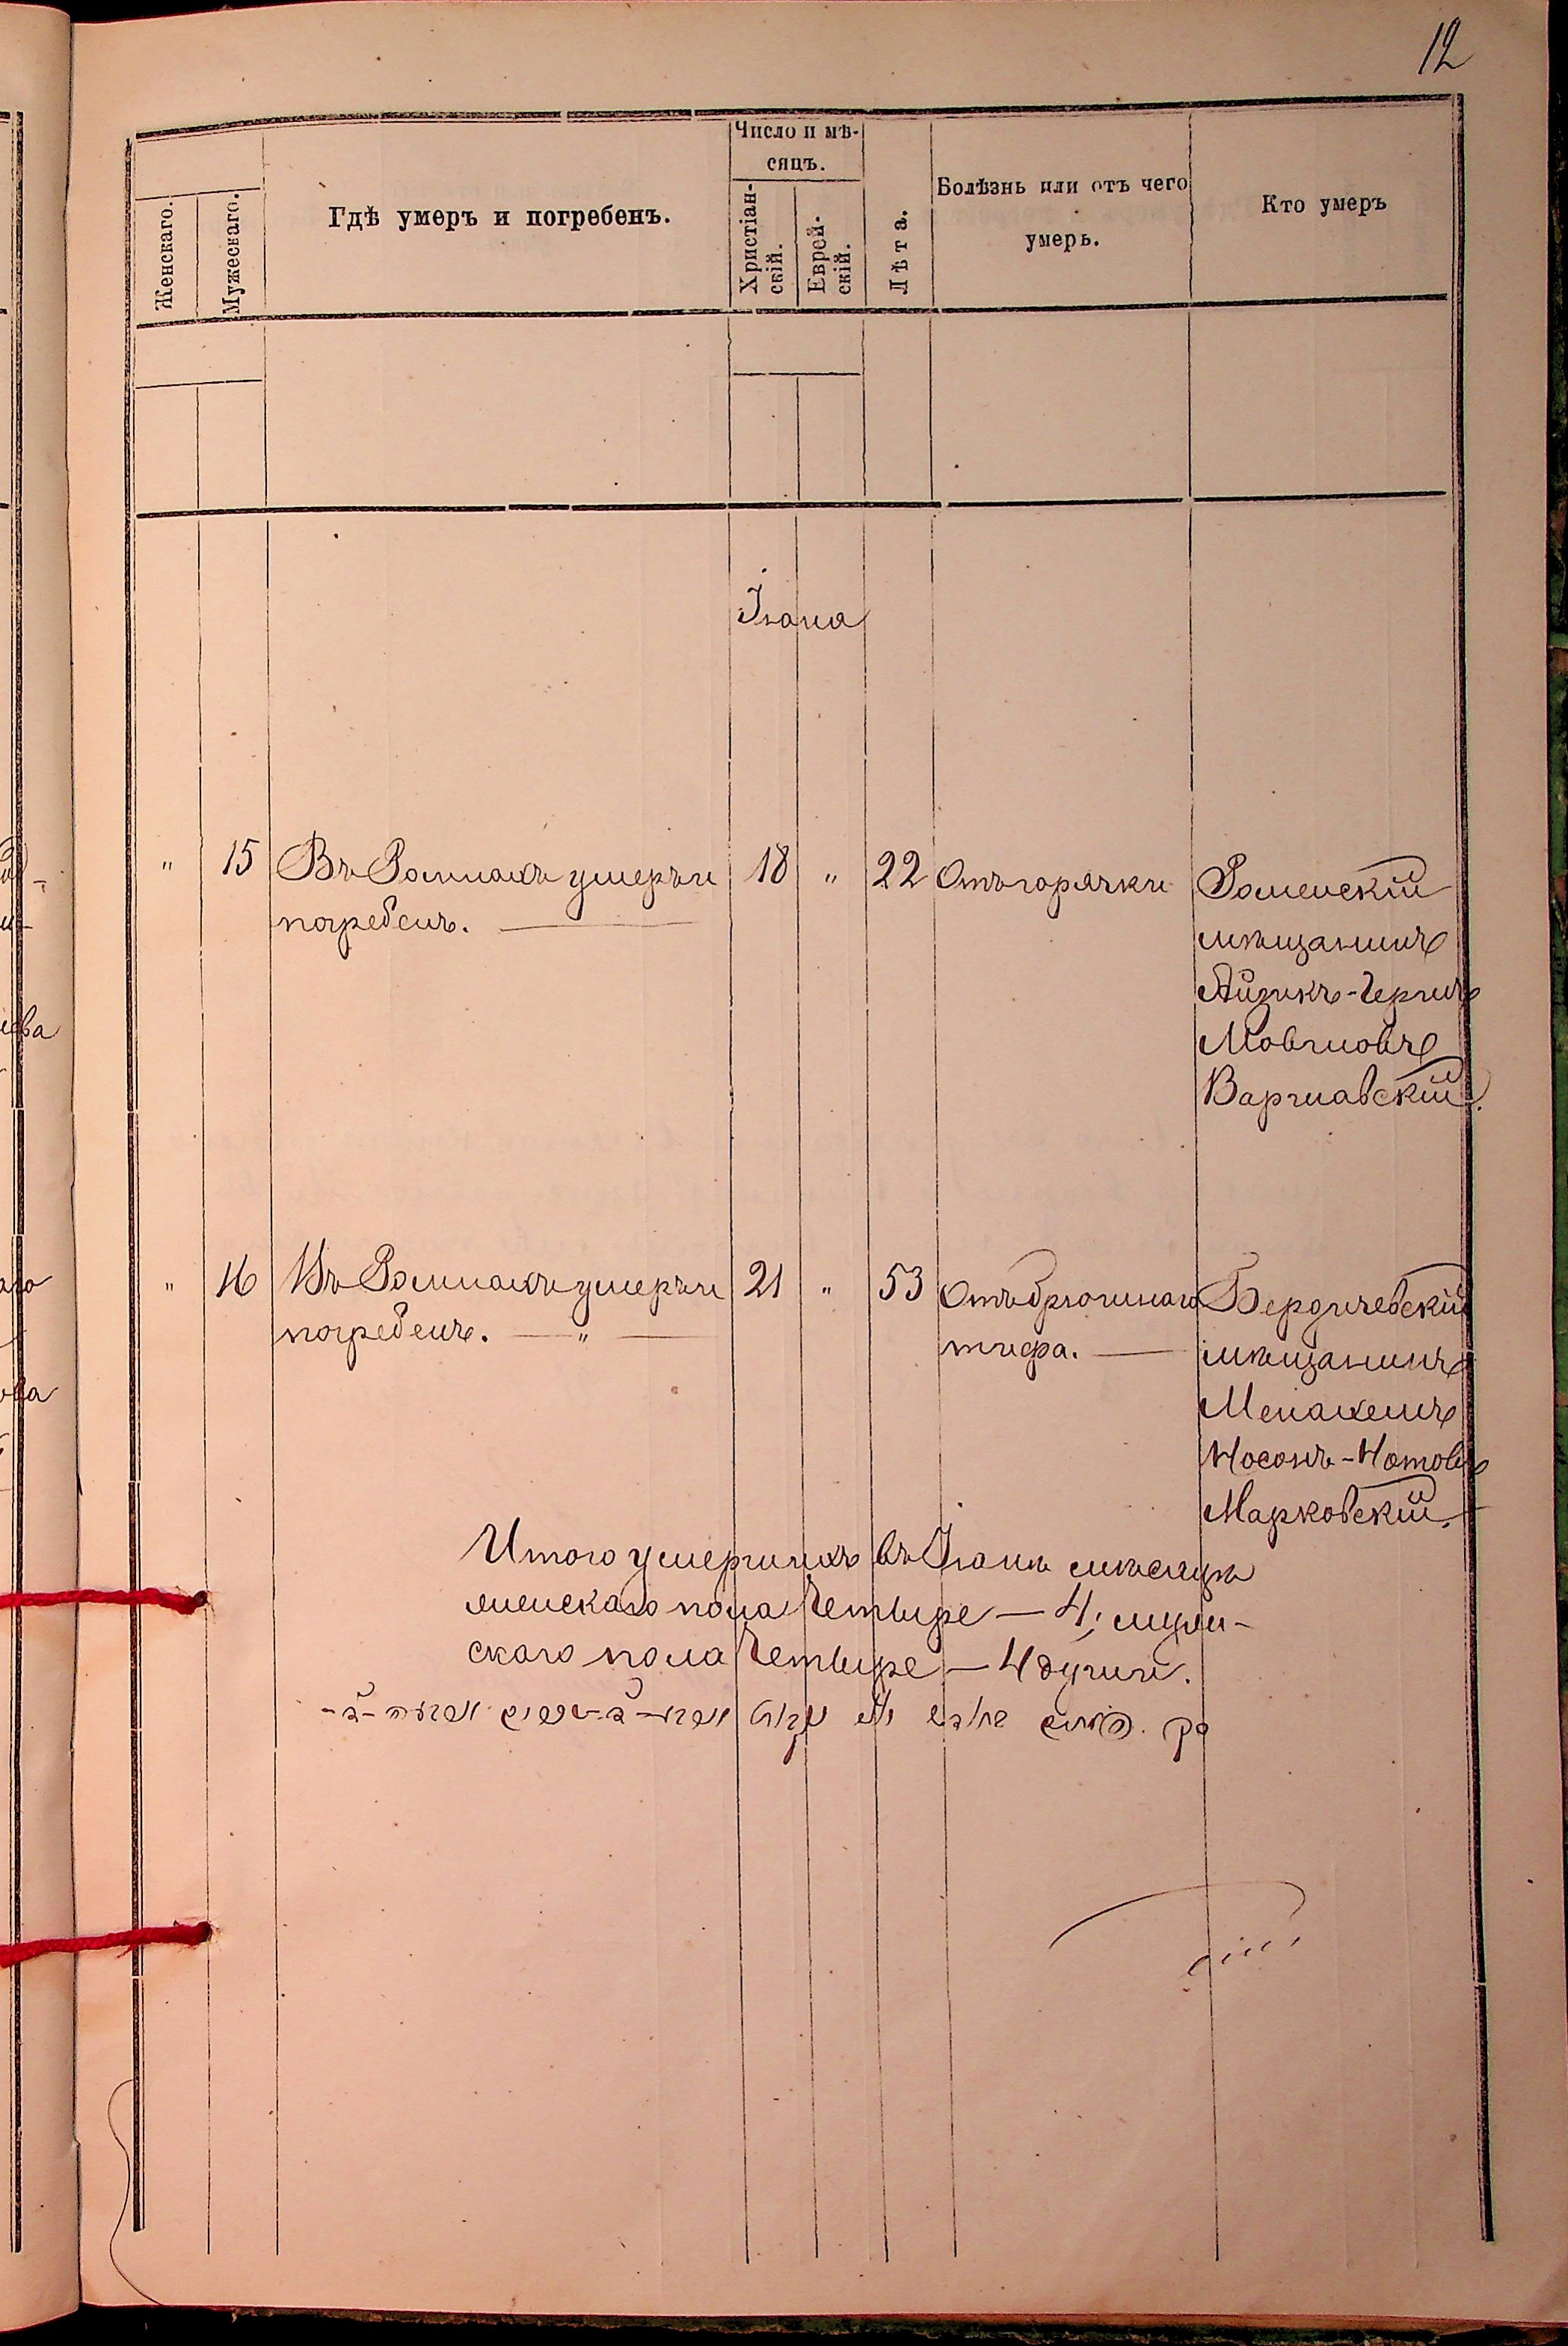 12
Число и мѣ-
сяцъ.
Женскаго.
Мужескаго.
Гдѣ умеръ и погребенъ.
Христіан-
скій.
Еврей-
скій.
Лѣта.
Болѣзнь или отъ чего
умеръ.
Кто умеръ
Іюня
" 15 Въ Ромнахъ умеръ и 18 " 22 Отъ горячки Роменскій
погребенъ. — мѣщанинъ
Айзикъ-Герцъ
Мовшовъ
Варшавскій.
" 16 Въ Ромнахъ умеръ и 21 " 53 Отъ брюшнаго Бердичевскій
погребенъ. — " — тифа. — мѣщанинъ
Менахемъ
Носонъ-Нотовъ
Марковскій.
Итого умершихъ въ Іюнѣ мѣсяцѣ
женскаго пола Четыре — 4; муж-
скаго пола Четыре — 4 души.